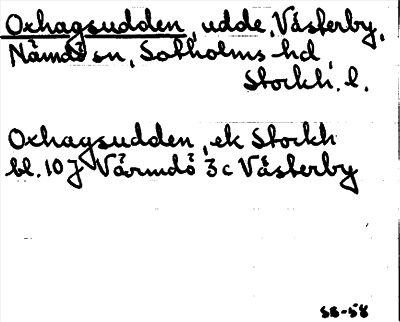 Oxhagsudden, udde, Västerby,
Nämdö sn, Sotholms hd,
Stockh. l.
Oxhagsudden, ek Stockh
bl. 10 J Värmdö 3c Västerby
SB-58